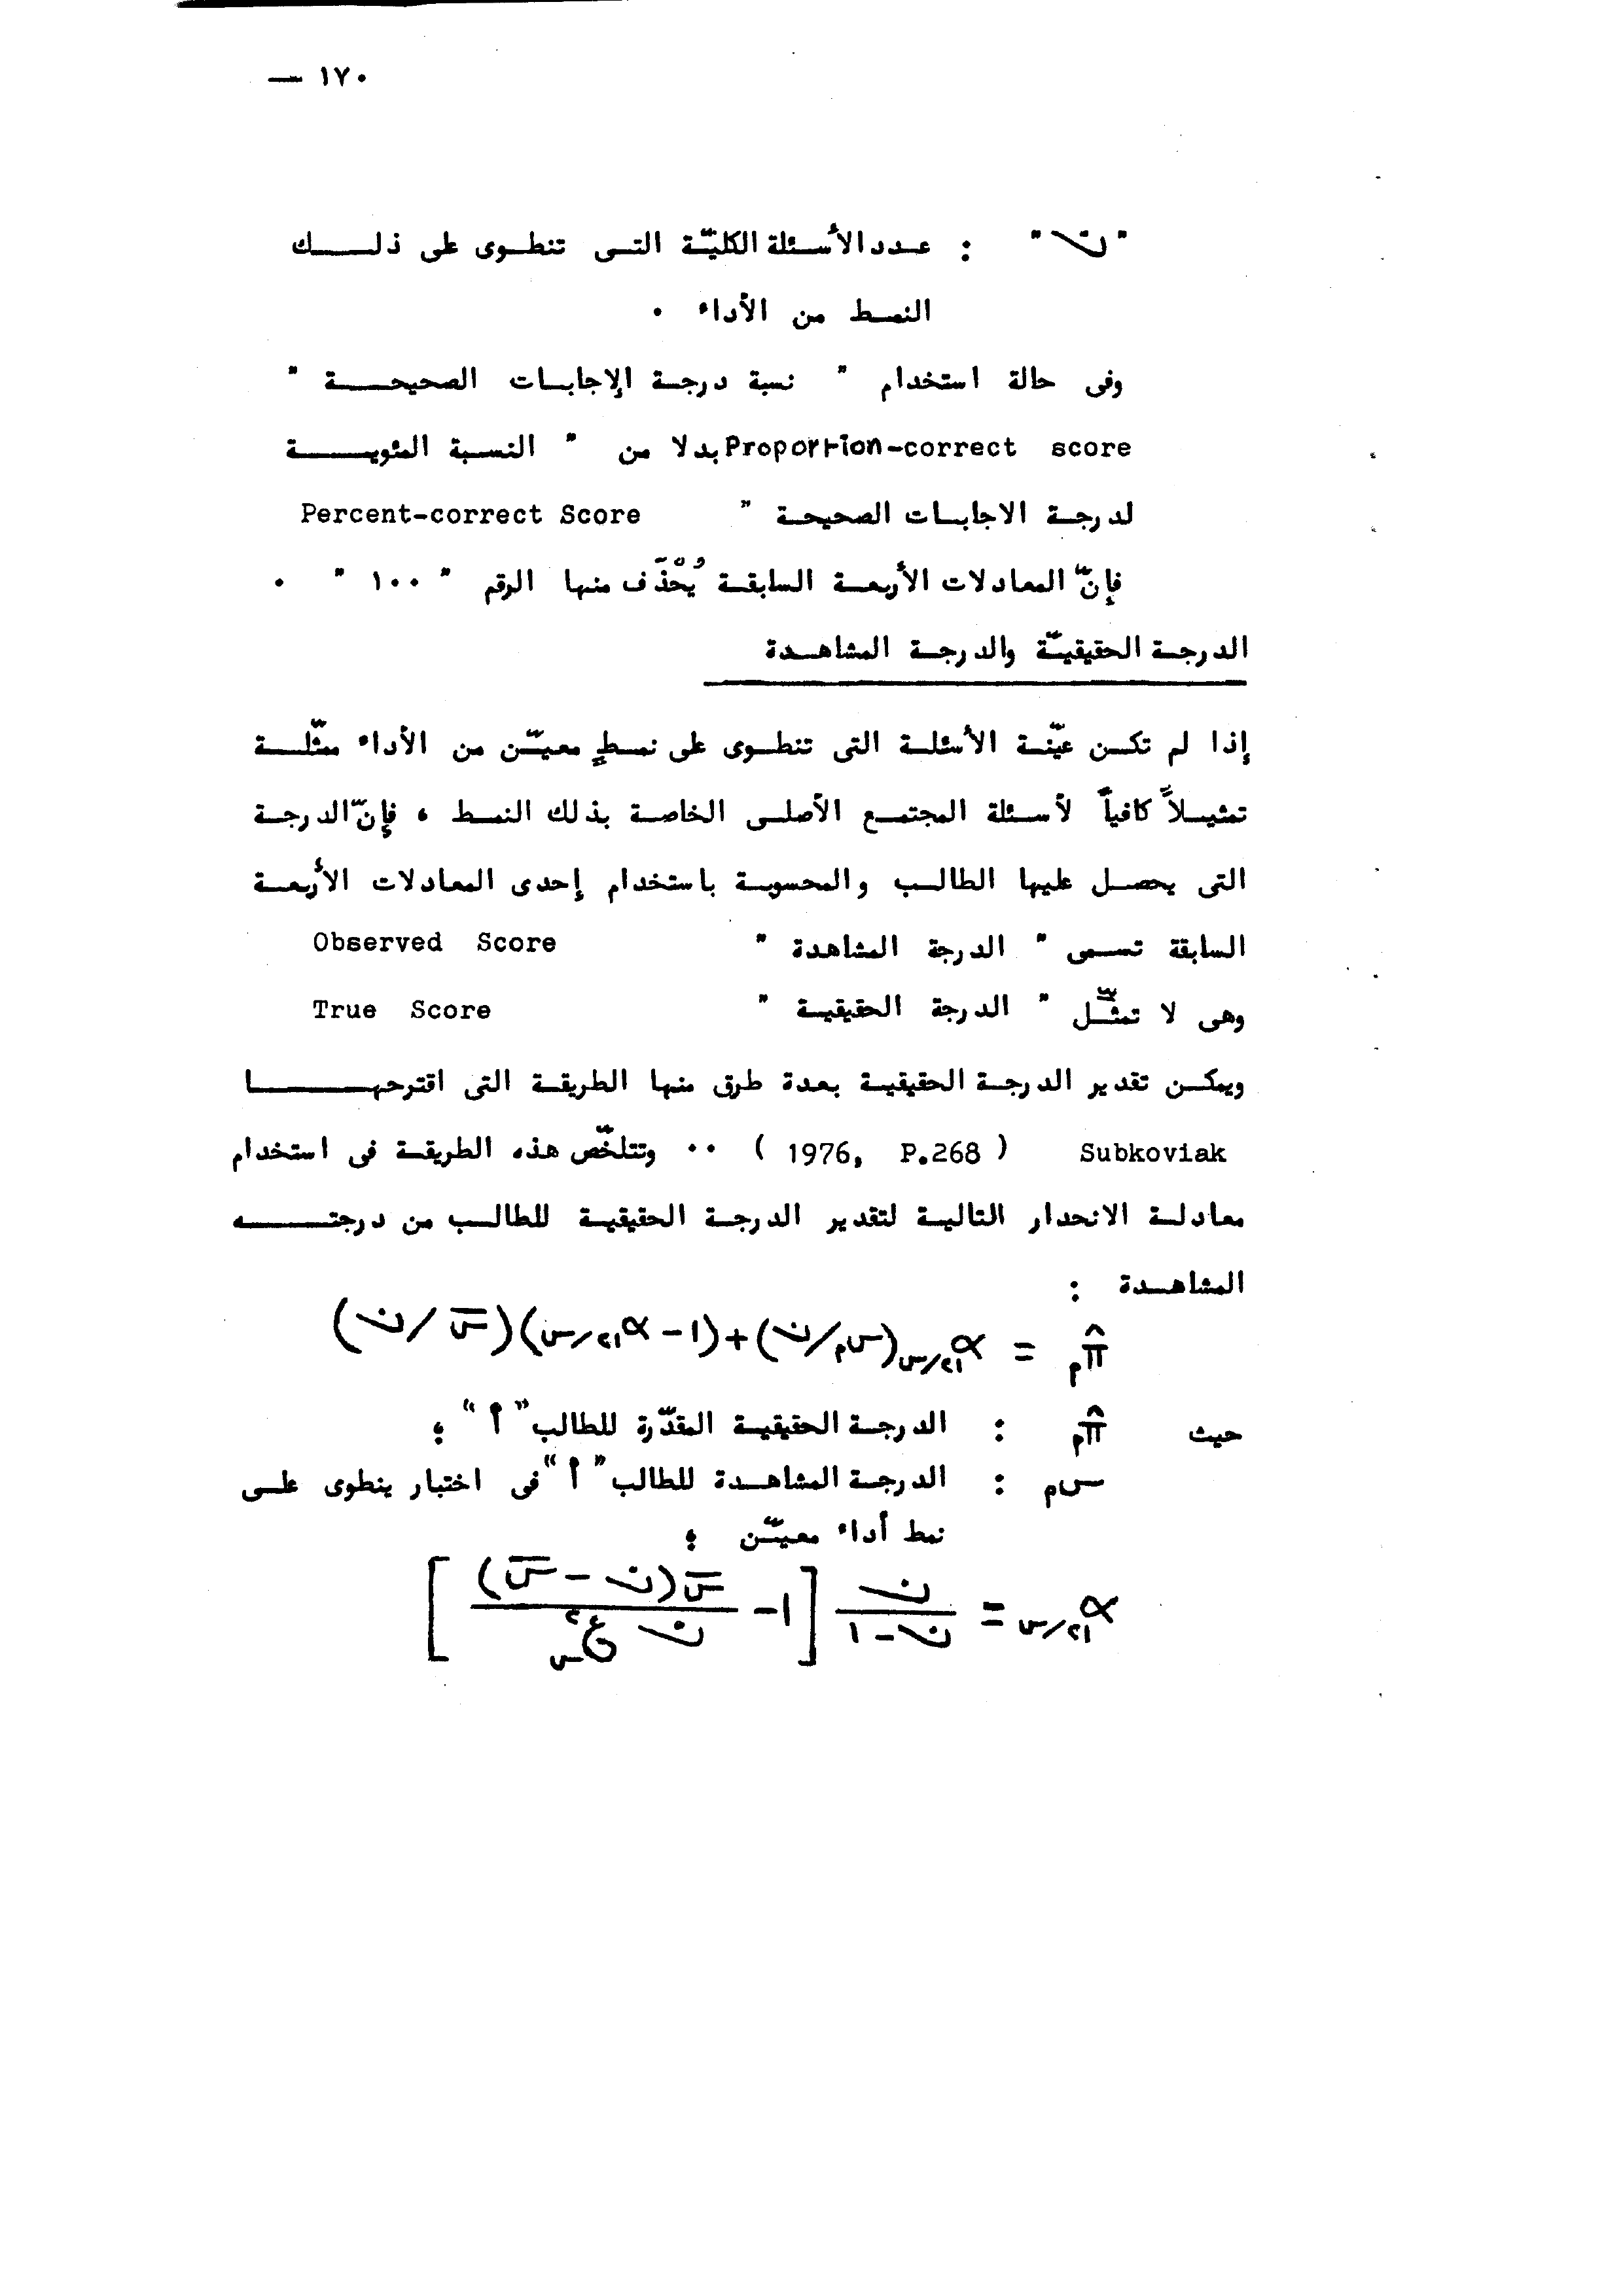 ١٧٠ —
"ن" : عدد الأسئلة الكليّة التى تنطوى على ذلك
النمط من الأداء .
وفى حالة استخدام " نسبة درجة الإجابات الصحيحة "
Proportion-correct score بدلا من " النسبة المئوية
لدرجة الاجابات الصحيحة " Percent-correct Score
فإنّ المعادلات الأربعة السابقة يُحْذَف منها الرقم " ١٠٠ " .
الدرجة الحقيقيّة والدرجة المشاهدة
إذا لم تكن عيّنة الأسئلة التى تنطوى على نمطٍ معيّن من الأداء ممثّلة
تمثيلاً كافياً لأسئلة المجتمع الأصلى الخاصة بذلك النمط ، فإنّ الدرجة
التى يحصل عليها الطالب والمحسوبة باستخدام إحدى المعادلات الأربعة
السابقة تسمى " الدرجة المشاهدة " Observed Score
وهى لا تمثّل " الدرجة الحقيقية " True Score
ويمكن تقدير الدرجة الحقيقية بعدة طرق منها الطريقة التى اقترحها
Subkoviak ( 1976, P.268 ) .. وتتلخّص هذه الطريقة فى استخدام
معادلة الانحدار التالية لتقدير الدرجة الحقيقية للطالب من درجته
المشاهدة :
π̂م = α٢١/س (سم/ن) + (١ - α٢١/س) (س̄/ن)
حيث π̂م : الدرجة الحقيقية المقدّرة للطالب "أ" ؛
سم : الدرجة المشاهدة للطالب "أ" فى اختبار ينطوى على
نمط أداء معيّن ؛
α٢١/س = ن / (ن - ١) [ ١ - س̄(ن - س̄) / ن ع²س ]